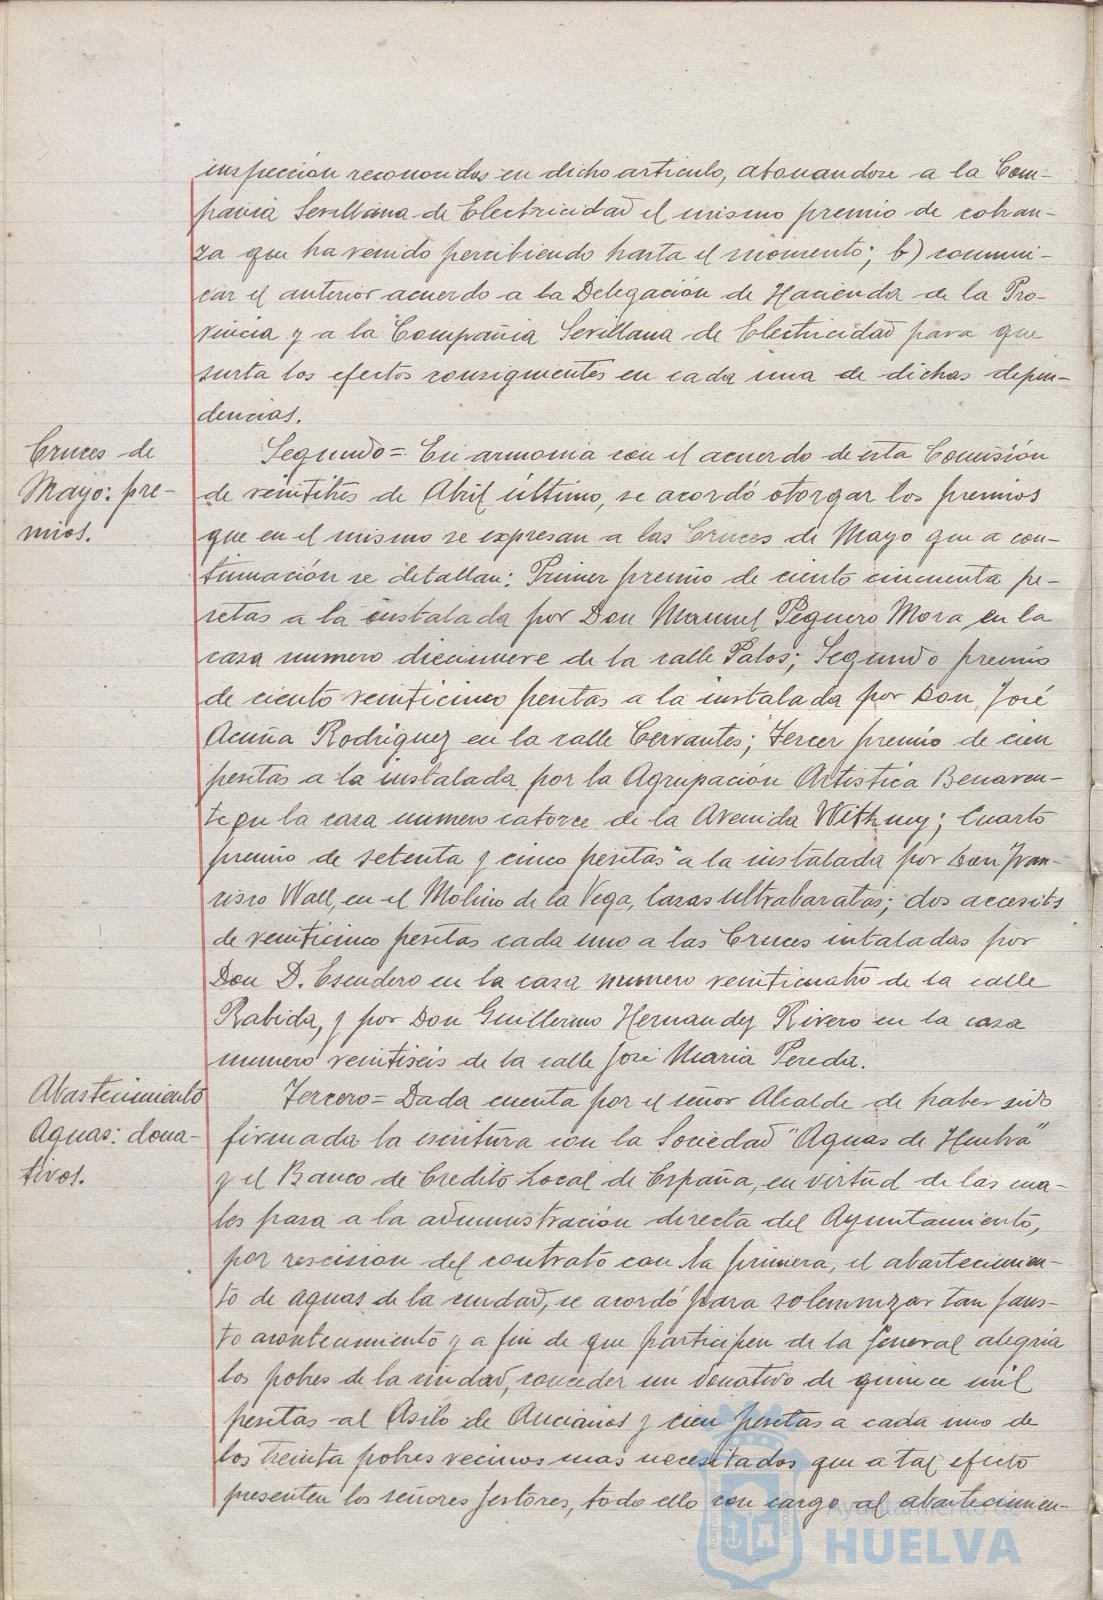 inspección reconocidos en dicho articulo, abonandose a la Com-
pañia Sevillana de Electricidad el mismo premio de cobran-
za que ha venido percibiendo hasta el momento; b) comuni-
car el anterior acuerdo a la Delegación de Hacienda de la Pro-
vincia y a la Compañia Sevillana de Electricidad para que
surta los efectos consiguientes en cada una de dichas depen-
dencias.
Cruces de
Mayo: pre-
mios.
Segundo= En armonia con el acuerdo de esta Comisión
de veintitres de Abril último, se acordó otorgar los premios
que en el mismo se expresan a las Cruces de Mayo que a con-
tinuación se detallan: Primer premio de ciento cincuenta pe-
setas a la instalada por Don Manuel Peguero Mora, en la
casa numero diecinueve de la calle Palos; Segundo premio
de ciento veinticinco pesetas a la instalada por Don José
Acuña Rodriguez en la calle Cervantes; Tercer premio de cien
pesetas a la instalada por la Agrupación Artistica Benaven-
te en la casa numero catorce de la Avenida Withney; Cuarto
premio de setenta y cinco pesetas a la instalada por Don Fran-
cisco Wall, en el Molino de la Vega, Casas Ultrabaratas; dos accesits
de veinticinco pesetas cada uno a las Cruces intaladas por
Don D. Escudero en la casa numero veinticuatro de la calle
Rabida, y por Don Guillermo Hernandez Rivero en la casa
numero veintiseis de la calle José Maria Pereda.
Abastecimiento
Aguas: dona-
tivos.
Tercero= Dada cuenta por el señor Alcalde de haber sido
firmada la escritura con la Sociedad "Aguas de Huelva"
y el Banco de Credito Local de España, en virtud de las cua-
les pasa a la administración directa del Ayuntamiento,
por rescision del contrato con la primera, el abastecimien-
to de aguas de la ciudad, se acordó para solemnizar tan faus-
to acontecimiento y a fin de que participen de la general alegria
los pobres de la ciudad, conceder un donativo de quince mil
pesetas al Asilo de Ancianos y cien pesetas a cada uno de
los treinta pobres vecinos mas necesitados que a tal efecto
presenten los señores Gestores, todo ello con cargo al abastecimien-
Ayuntamiento de
HUELVA